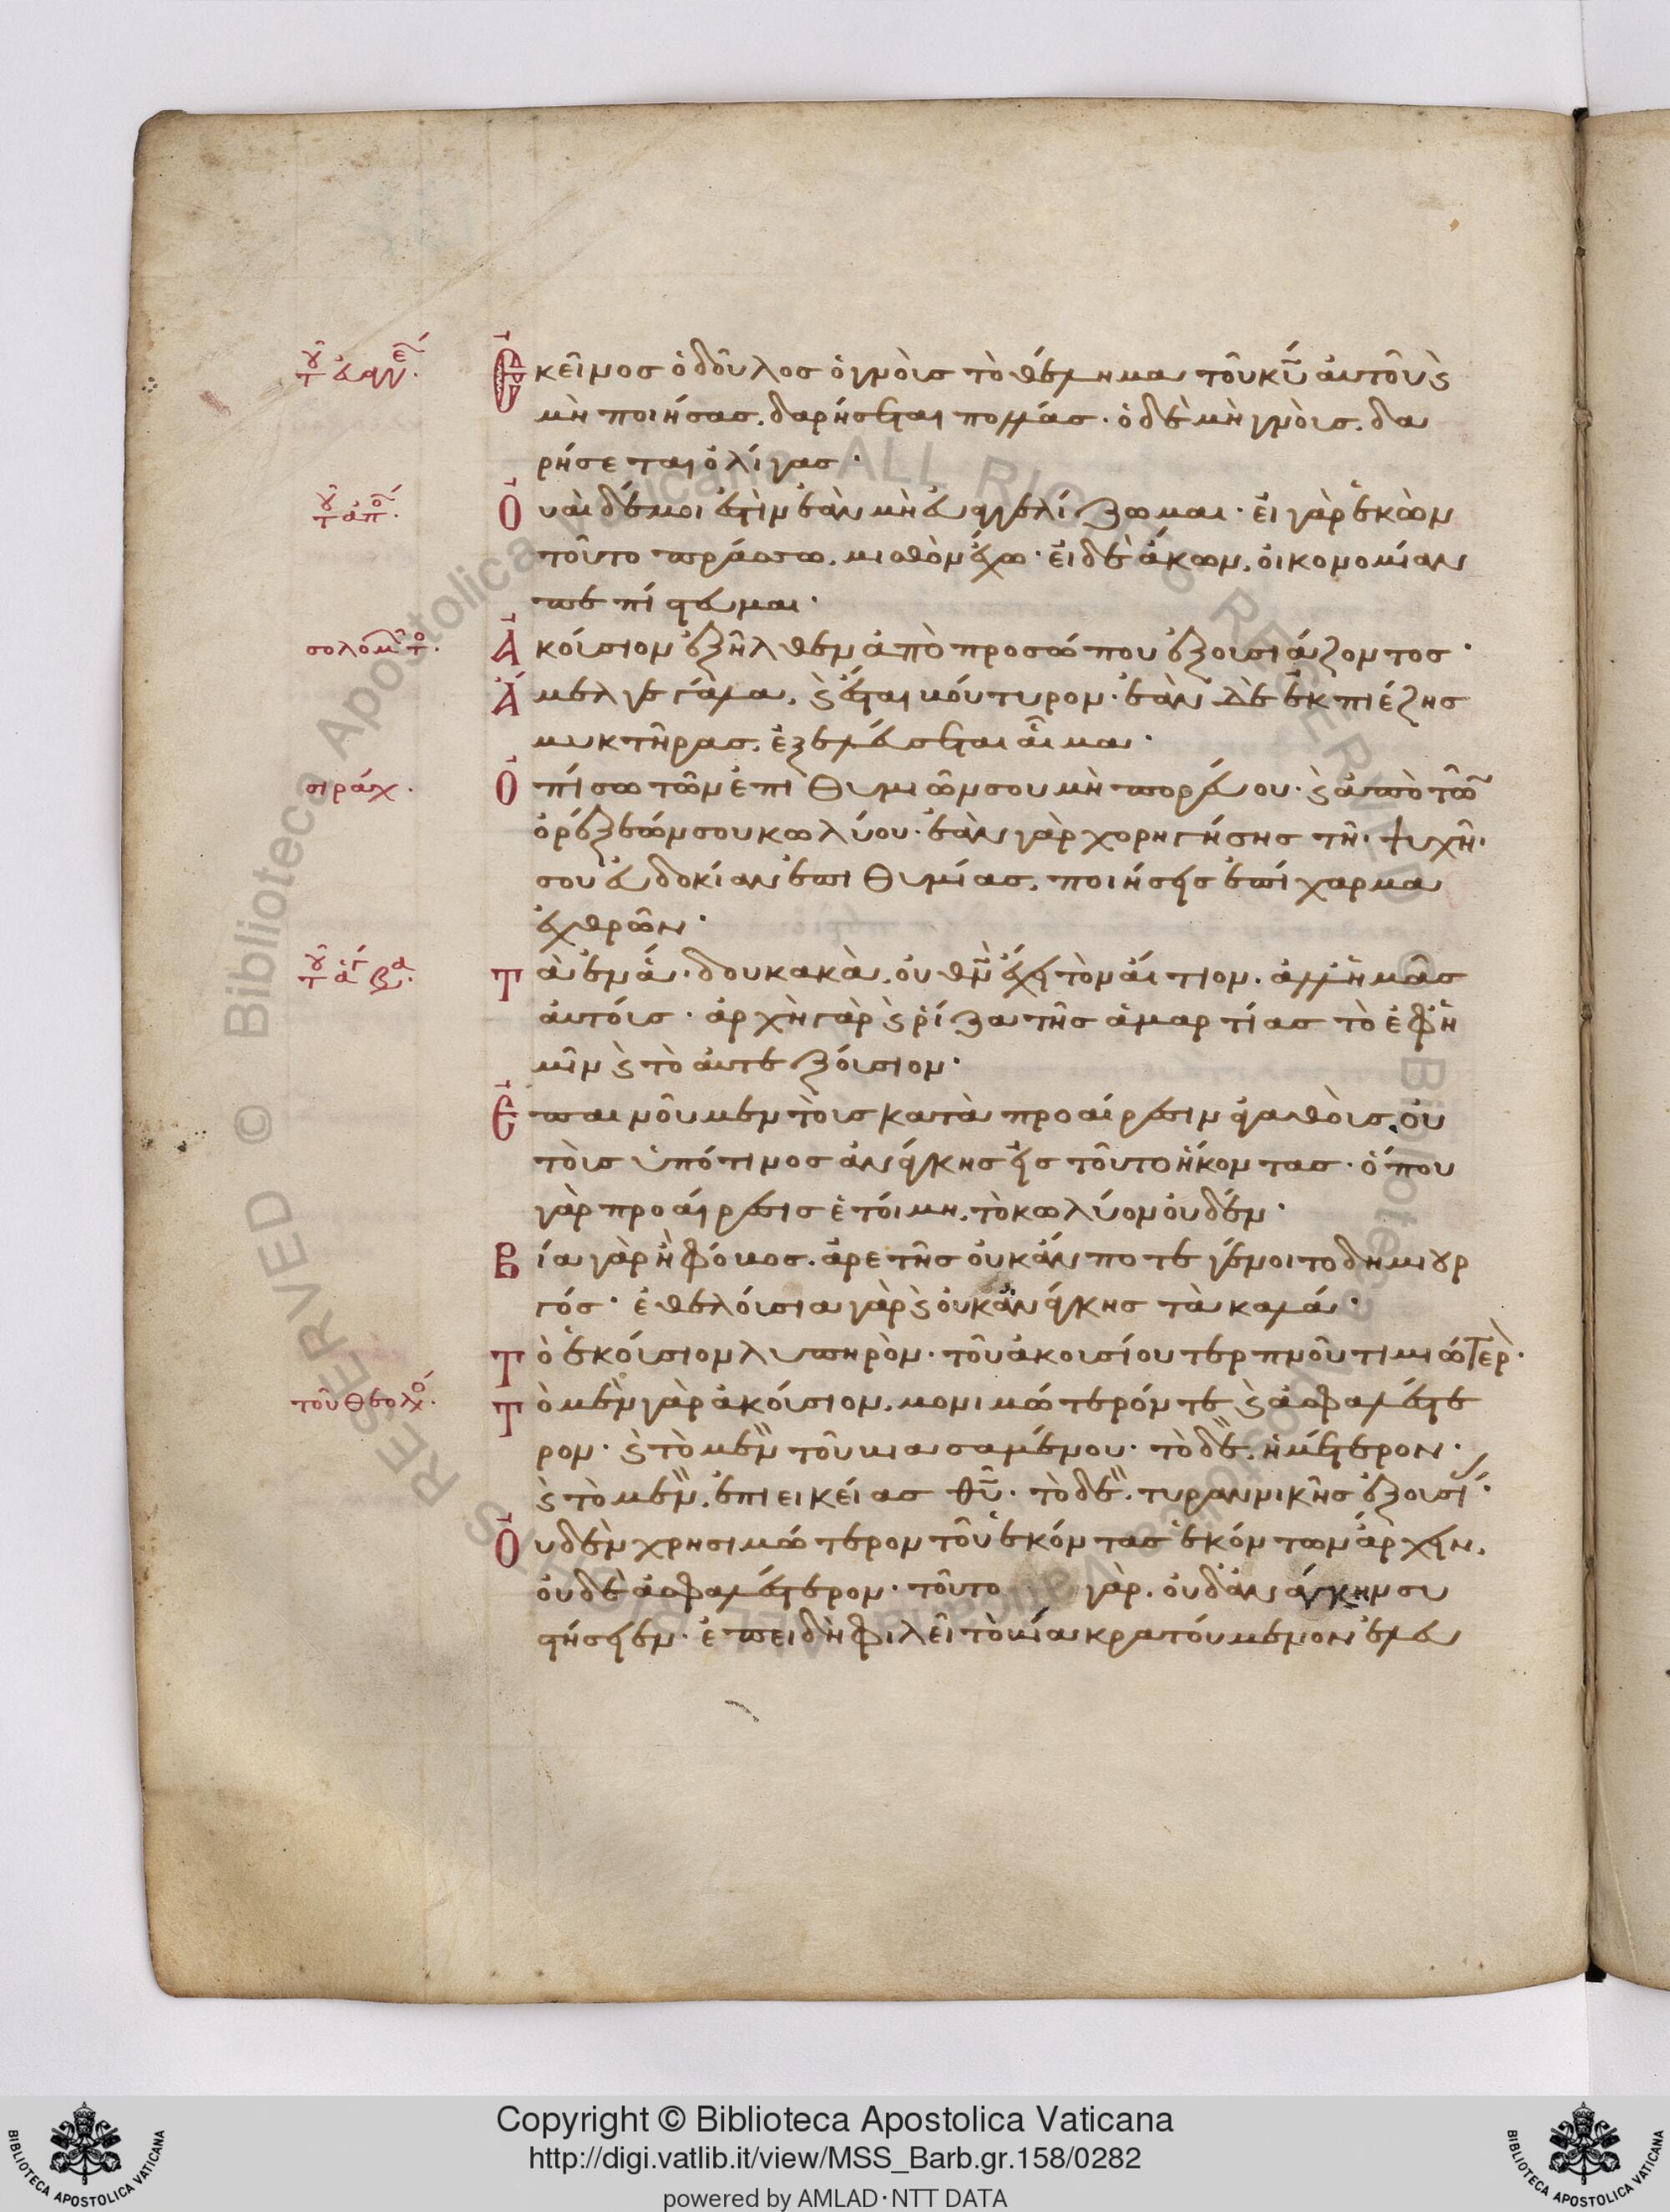 τοῦ εὐαγγε
Ἐκεῖνος ὁ δοῦλος ὁ γνοὺς τὸ θέλημα τοῦ κυ αὐτοῦ ϗ
μὴ ποιήσας, δαρήσεται πολλάς· ὁ δὲ μὴ γνοὺς, δα
ρήσεται ὀλίγας·
τοῦ ἀπο
Οὐαὶ δέ μοι ἐστὶν ἐὰν μὴ εὐαγγελίζωμαι· εἰ γὰρ ἑκὼν
τοῦτο πράσσω, μισθὸν ἔχω· εἰ δὲ ἄκων, οἰκονομίαν
πεπίστευμαι·
σολομῶντο
Ἀκούσιον ἐξῆλθεν ἀπὸ προσώπου ἐξουσιάζοντος·
Ἄμελγε γάλα, ϗ ἔσται βούτυρον· ἐὰν δὲ ἐκπιέζης
μυκτῆρας, ἐξελεύσεται αἷμα·
σιράχ
Ὀπίσω τῶν ἐπιθυμιῶν σου μὴ πορεύου· ϗ ἀπὸ τῶν
ὀρέξεών σου κωλύου· ἐὰν γὰρ χορηγήσης τῆ ψυχῆ
σου εὐδοκίαν ἐπιθυμίας, ποιήσεις ἐπίχαρμα
ἐχθρῶν·
τοῦ ἁγ βα
Τὰ ἐν ἅδου κακὰ, οὐ θν ἔχει τὸν αἴτιον, ἀλλ' ἡμᾶς
αὐτούς· ἀρχὴ γὰρ ϗ ῥίζα τῆς ἁμαρτίας τὸ ἐφ' ἡ
μῖν ϗ τὸ αὐτεξούσιον·
Ἐπαινοῦμεν τοὺς κατὰ προαίρεσιν ἀγαθοὺς, οὐ
τοὺς ὑπό τινος ἀνάγκης εἰς τοῦτο ἥκοντας· ὅπου
γὰρ προαίρεσις ἑτοίμη, τὸ κωλύον οὐδέν·
Βία γὰρ ἢ φόβος, ἀρετῆς οὐκ ἄν ποτε γένοιτο δημιουρ
γός· ἐθελούσια γὰρ ϗ οὐκ ἀνάγκης τὰ καλά·
Τὸ ἑκούσιον λυπηρὸν, τοῦ ἀκουσίου τερπνοῦ τιμιώτερ·
τοῦ θεολογο
Τὸ μὲν γὰρ ἀκούσιον, νομιμώτερόν τε ϗ ἀσφαλέστε
ρον· ϗ τὸ μὲν τοῦ βιασαμένου· τὸ δὲ, ἡμέτερον·
ϗ τὸ μὲν, ἐπιεικείας θυ· τὸ δὲ, τυραννικῆς ἐξουσί·
Οὐδὲν χρησιμώτερον τοῦ ἑκόντας ἑκόντων ἄρχειν,
οὐδὲ ἀσφαλέστερον· τοῦτο γὰρ, οὐδ' ἀνάγκην συ
στήσειεν· ἐπειδὴ φιλεῖ τὸ βία κρατούμενον ἐλευ
Copyright © Biblioteca Apostolica Vaticana
http://digi.vatlib.it/view/MSS_Barb.gr.158/0282
powered by AMLAD·NTT DATA